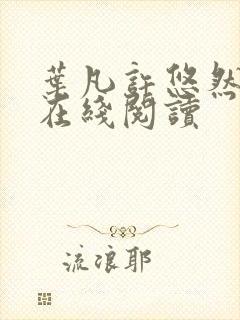 葉凡許悠然
在綫閱讀
流浪耶